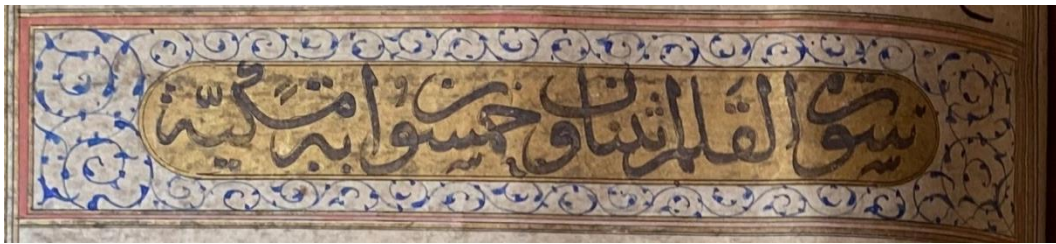 سورة القلم اثنتان وخمسون اية مكية